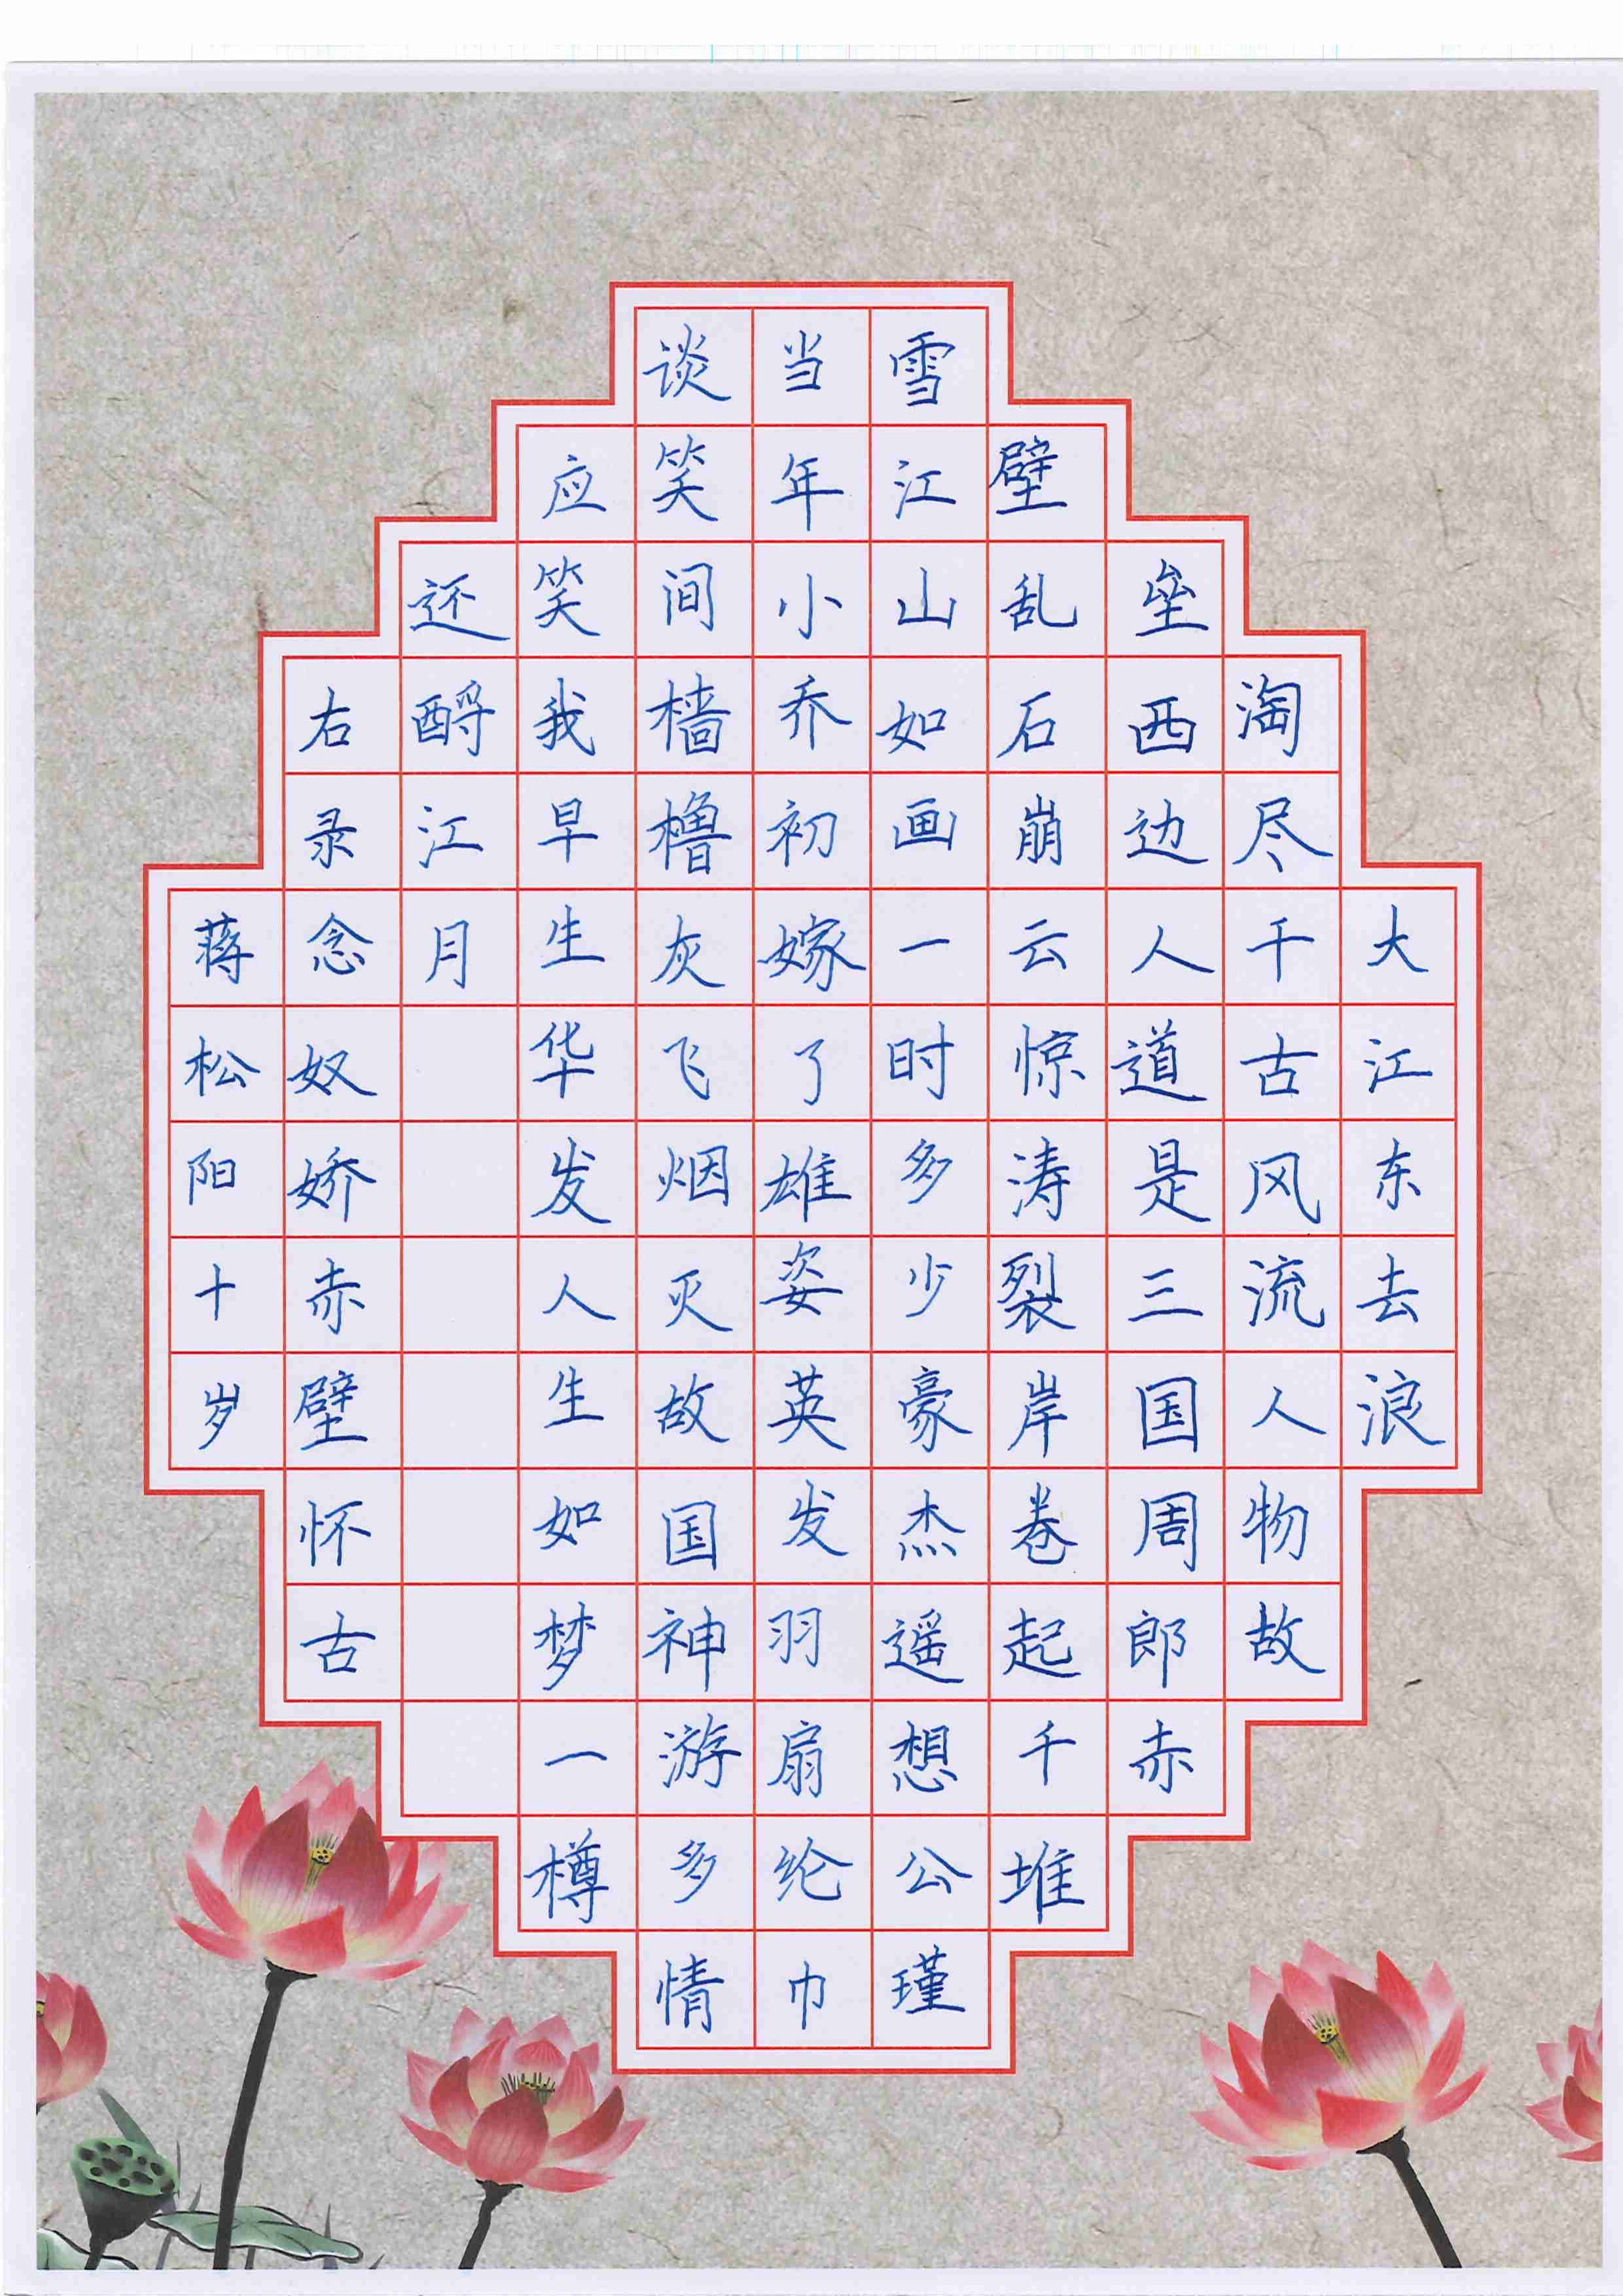 大江东去浪
淘尽千古风流人物故
垒西边人道是三国周郎赤
壁乱石崩云惊涛裂岸卷起千堆
雪江山如画一时多少豪杰遥想公瑾
当年小乔初嫁了雄姿英发羽扇纶巾
谈笑间樯橹灰飞烟灭故国神游多情
应笑我早生华发人生如梦一樽
还酹江月
右录念奴娇赤壁怀古
蒋松阳十岁